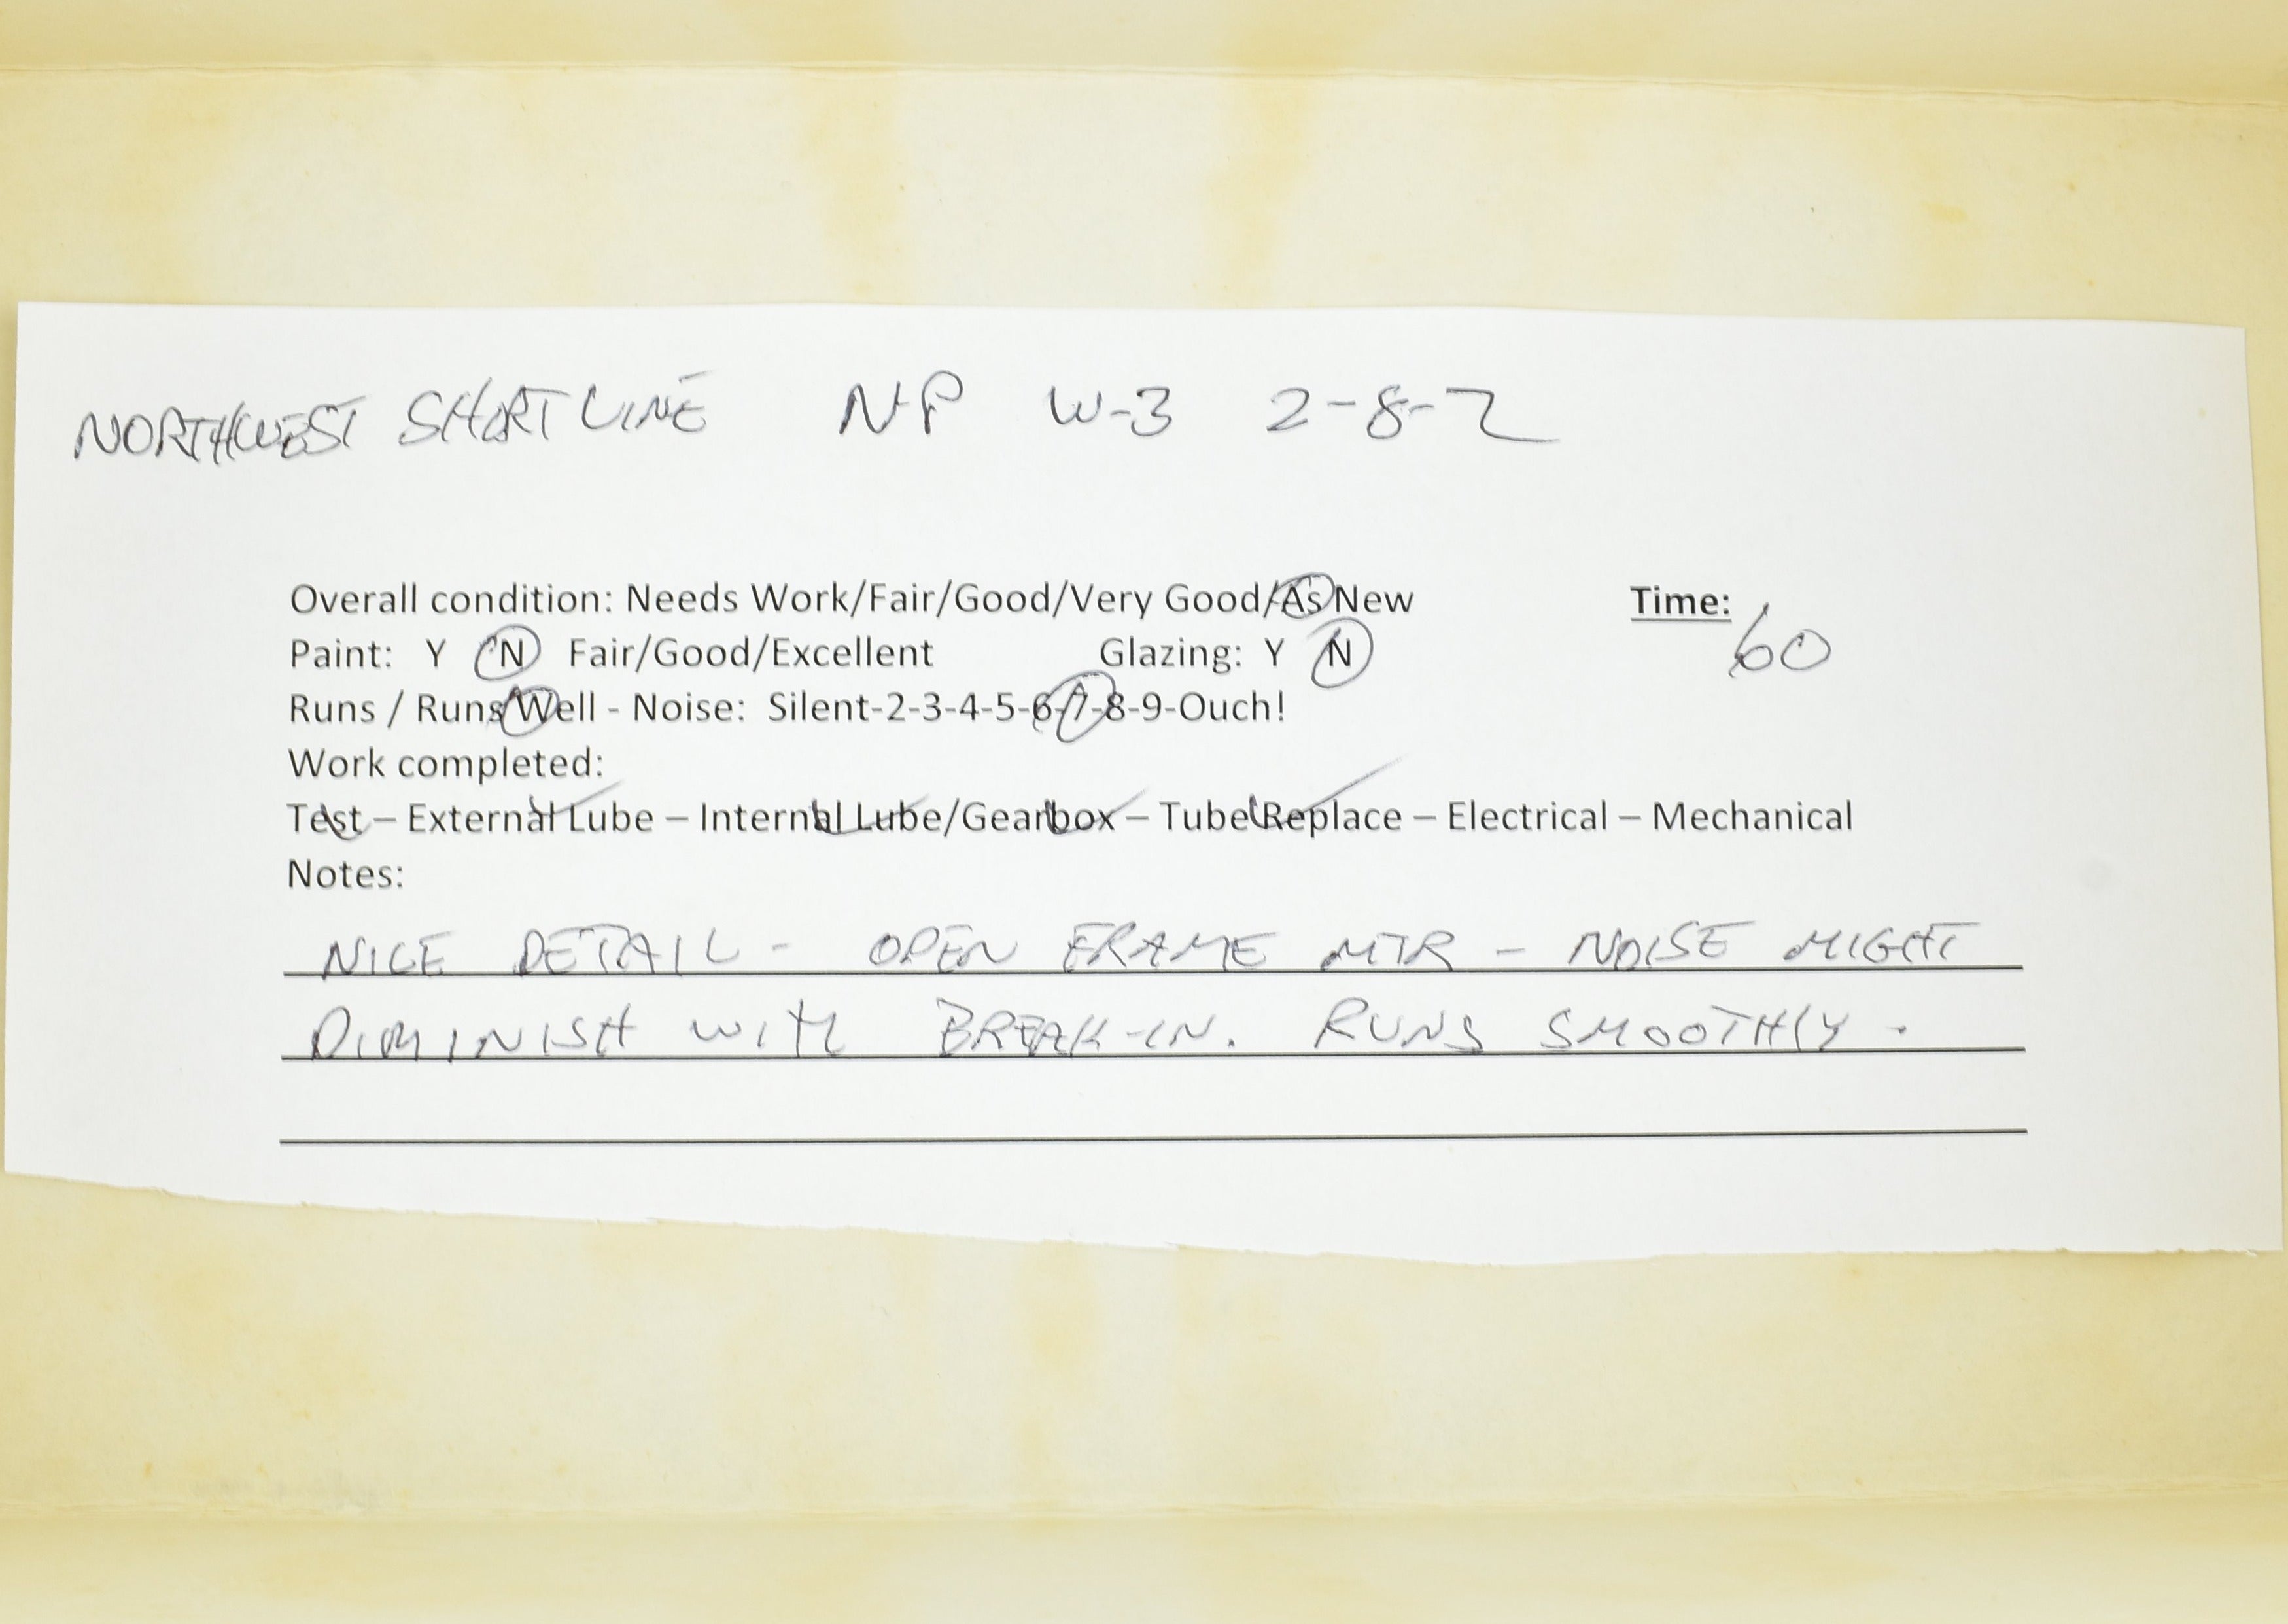 NORTHWEST SHORT LINE NP W-3 2-8-2
Overall condition: Needs Work/Fair/Good/Very Good/As New Time:
Paint: Y N Fair/Good/Excellent Glazing: Y N 60
Runs / Runs Well - Noise: Silent-2-3-4-5-6-7-8-9-Ouch!
Work completed:
Test – External Lube – Internal Lube/Gearbox – Tube Replace – Electrical – Mechanical
Notes:
NICE DETAIL - OPEN FRAME MTR - NOISE MIGHT
DIMINISH WITH BREAK-IN. RUNS SMOOTHLY.